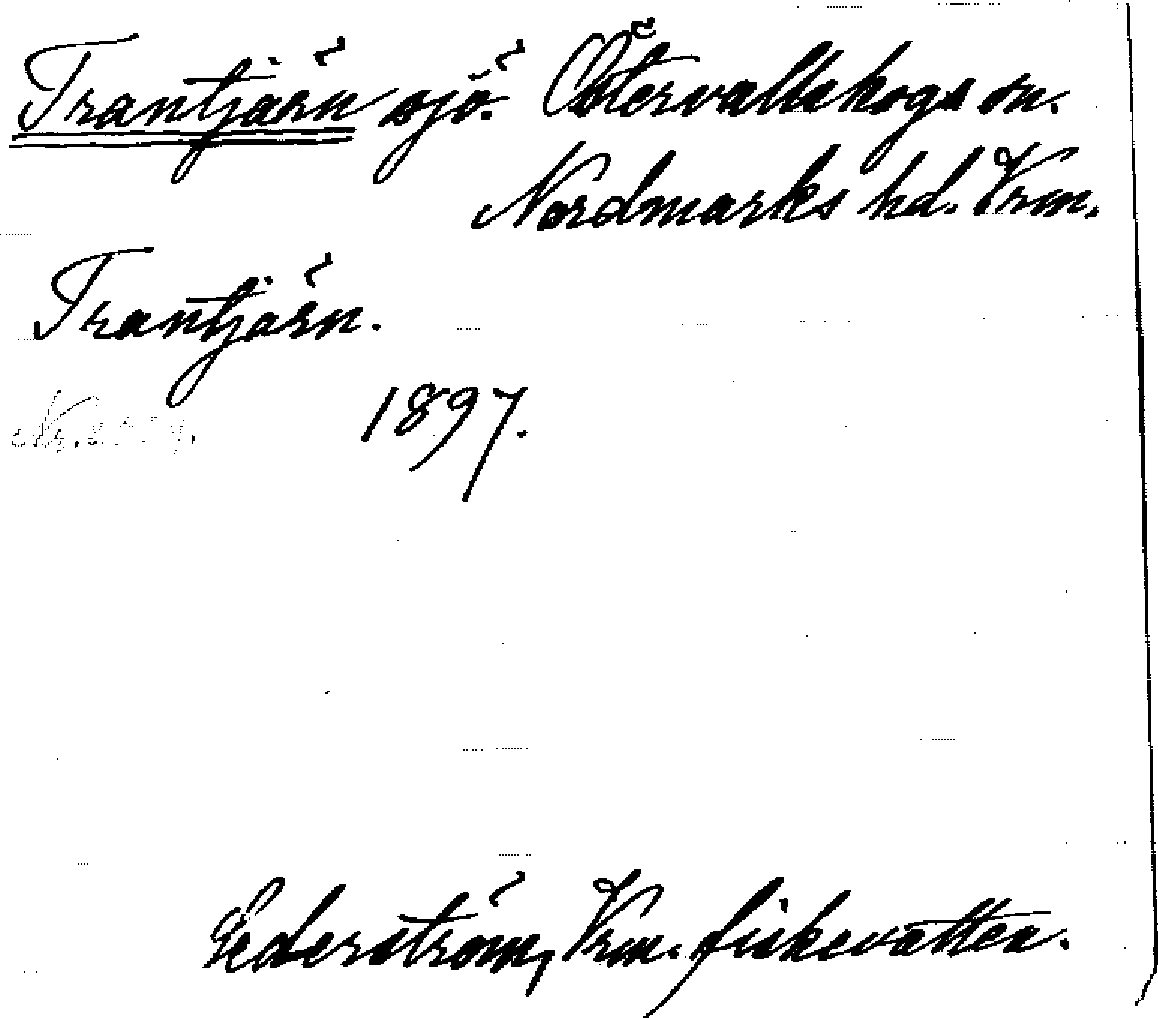 Trantjärn sjö. Östervallskogs sn.
Nordmarks hd. Vrm.
Trantjärn.
1897.
Cederström, Vrm. fiskevatten.